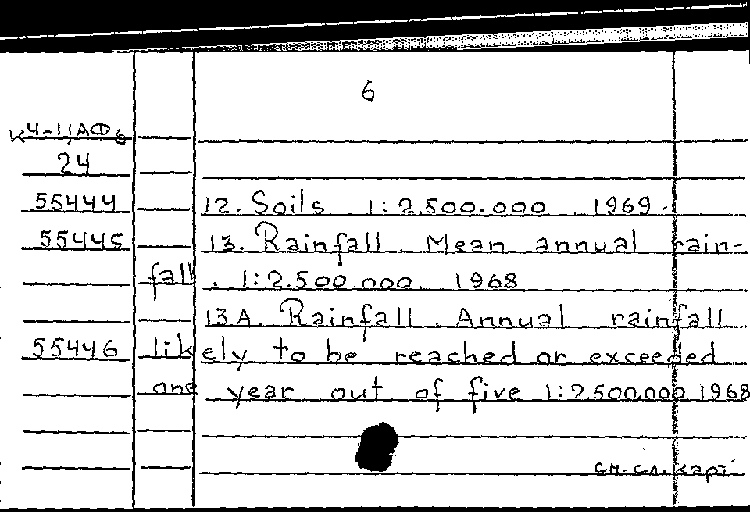 6
К4-ЦАФ6
24
55444 12. Soils 1:2.500.000 1969.
55445 13. Rainfall. Mean annual rain-
fall. 1:2.500.000. 1968
13A. Rainfall. Annual rainfall
55446 likely to be reached or exceeded
one year out of five 1:2.500.000 1968
см. сл. карт